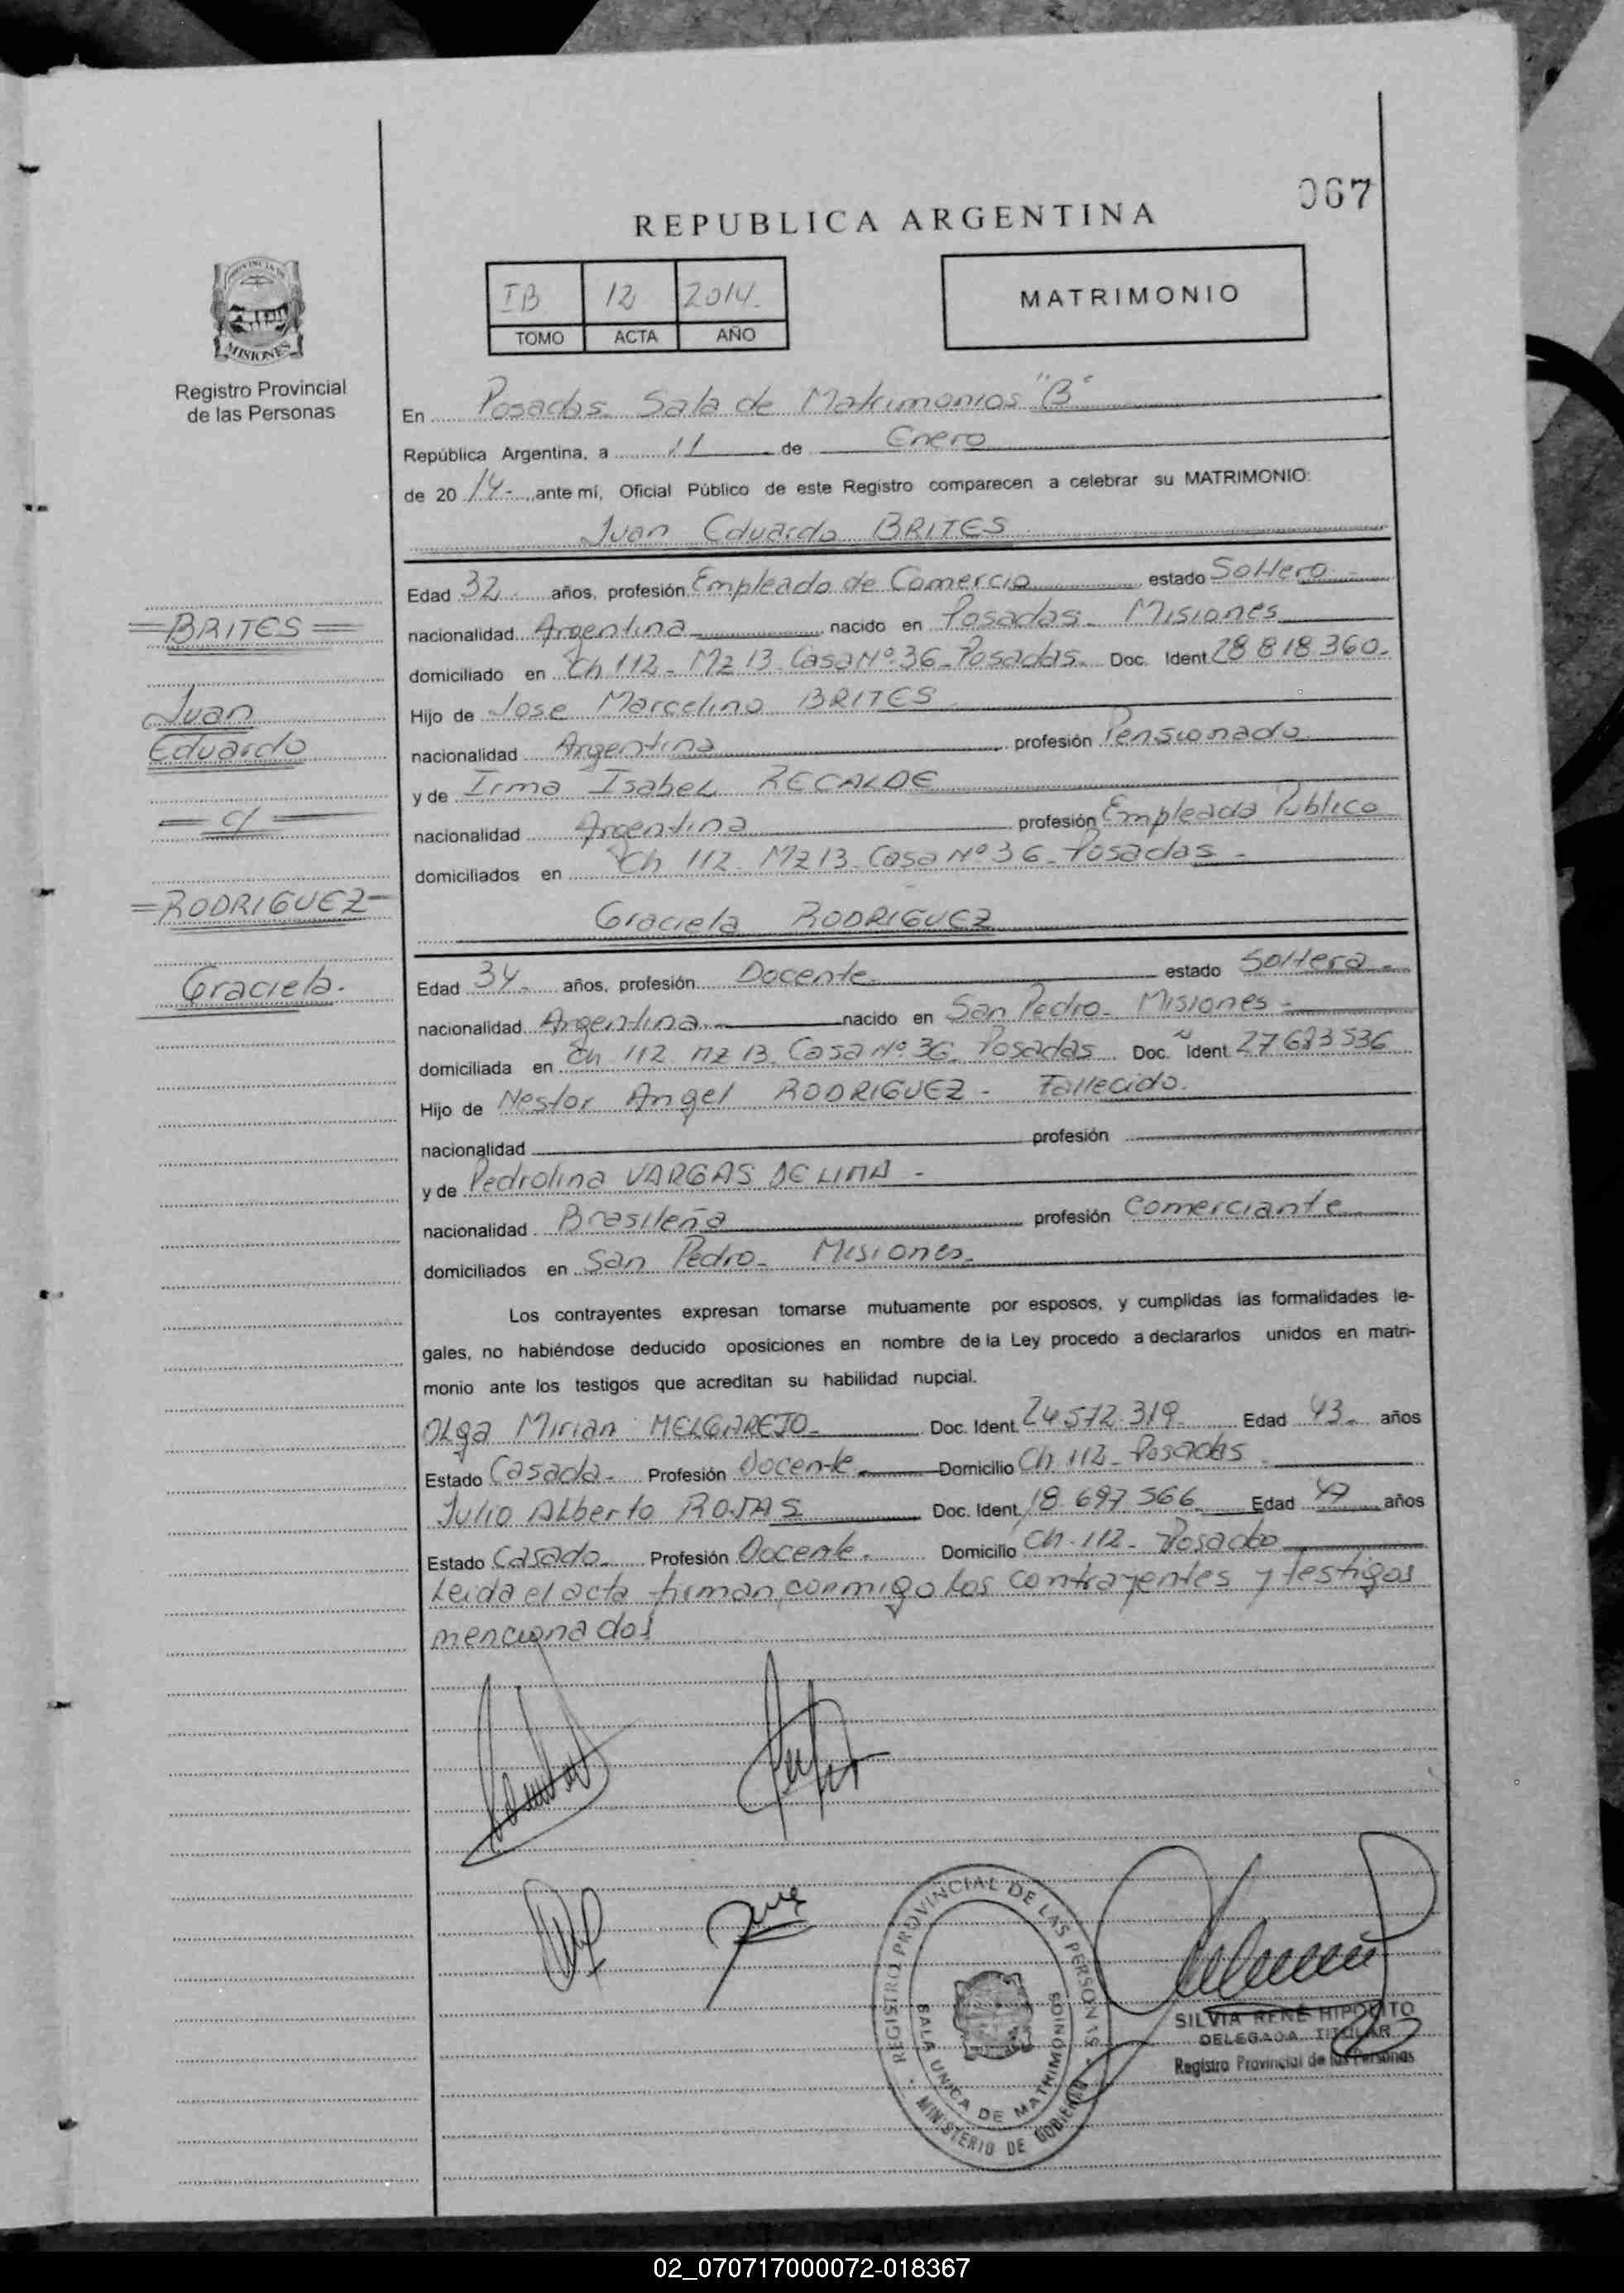 067
REPUBLICA ARGENTINA
PROVINCIA DE
MISIONES
Registro Provincial
de las Personas
IB 12 2014.
TOMO ACTA AÑO
MATRIMONIO
En Posadas Sala de Matrimonios "B"
República Argentina, a 11 de Enero
de 20 14- ante mí, Oficial Público de este Registro comparecen a celebrar su MATRIMONIO:
Juan Eduardo BRITES
Edad 32 años, profesión Empleado de Comercio estado Soltero
nacionalidad Argentina nacido en Posadas - Misiones
domiciliado en Ch 112 - Mz 13 Casa Nº 36 - Posadas. Doc. Ident 28 818 360.
Hijo de Jose Marcelino BRITES
nacionalidad Argentina profesión Pensionado
y de Irma Isabel RECALDE
nacionalidad Argentina profesión Empleada Publica
domiciliados en Ch 112 - Mz 13 - Casa Nº 36 - Posadas -
Graciela RODRIGUEZ
=BRITES=
Juan
Eduardo
= c/ =
=RODRIGUEZ-
Graciela.
Edad 34 - años, profesión Docente estado Soltera -
nacionalidad Argentina nacido en San Pedro - Misiones -
domiciliada en Ch 112 Mz 13. Casa Nº 36 - Posadas Doc. Ident 27 6 3 536
Hijo de Nestor Angel RODRIGUEZ - Fallecido.
nacionalidad profesión
y de Pedrolina VARGAS DE LIMA -
nacionalidad Brasileña profesión Comerciante
domiciliados en San Pedro - Misiones -
Los contrayentes expresan tomarse mutuamente por esposos, y cumplidas las formalidades le-
gales, no habiéndose deducido oposiciones en nombre de la Ley procedo a declararlos unidos en matri-
monio ante los testigos que acreditan su habilidad nupcial.
Olga Mirian MELGAREJO - Doc. Ident. 24 572 319 Edad 43 - años
Estado Casada - Profesión Docente Domicilio Ch 112 - Posadas
Julio Alberto ROJAS Doc. Ident. 18 697 566 Edad 47 años
Estado Casado - Profesión Docente. Domicilio Ch. 112 - Posadas
Leida el acta firman conmigo los contrayentes y testigos
mencionados
REGISTRO PROVINCIAL DE LAS PERSONAS
SALA UNICA DE MATRIMONIOS
MINISTERIO DE GOBIERNO
SILVIA RENÉ HIPOLITO
DELEGADA TITULAR
Registro Provincial de las Personas
02_070717000072-018367